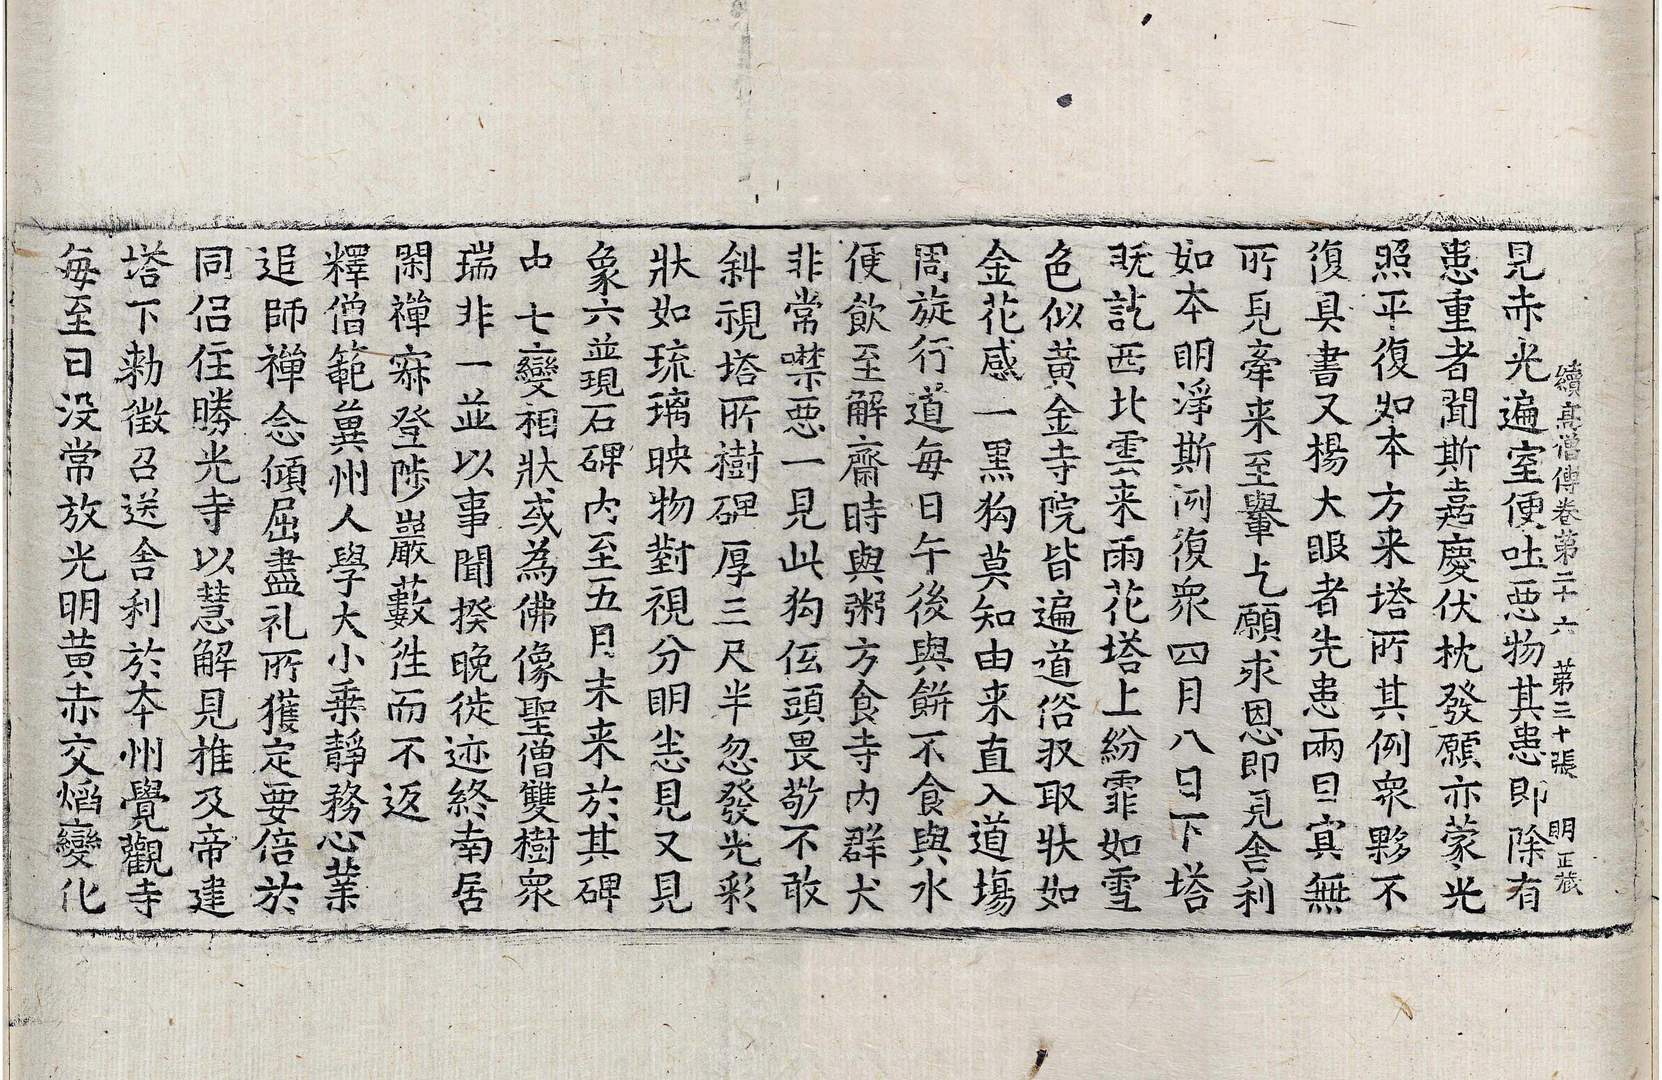 續高僧傳卷第二十六 第三十張 明正藏
見赤光遍室便吐惡物其患即除有
患重者聞斯嘉慶伏枕發願亦蒙光
照平復如本方来塔所其例衆夥不
復具書又揚大眼者先患兩目冥無
所見牽来至轝乞願求恩即見舍利
如本明淨斯例復衆四月八日下塔
既訖西北雲来雨花塔上紛霏如雪
色似黃金寺院皆遍道俗収取狀如
金花感一黑狗莫知由来直入道場
周旋行道每日午後與餅不食與水
便飲至解齋時與粥方食寺内群犬
非常噤惡一見此狗伍頭畏敬不敢
斜視塔所樹碑厚三尺半忽發光彩
狀如琉璃映物對視分明恙見又見
象六並現石碑内至五月末来於其碑
内七變相狀或為佛像聖僧雙樹衆
瑞非一並以事聞揆晚徙迹終南居
閑禪寂登陟巖藪徃而不返
釋僧範冀州人學大小乗靜務心業
追師禪念傾屈盡礼所獲定要倍於
同侶住勝光寺以慧解見推及帝建
塔下勑徵召送舍利於本州覺觀寺
每至日没常放光明黄赤交焰變化